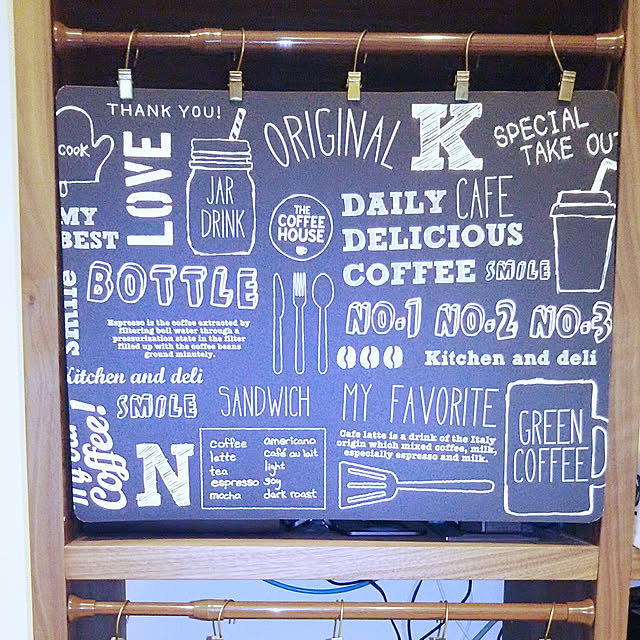 THANK YOU!
COOK
LOVE
JAR
DRINK
ORIGINAL
K
SPECIAL
TAKE OUT
MY
BEST
THE
COFFEE
HOUSE
DAILY CAFE
DELICIOUS
COFFEE SMILE
Smile
BOTTLE
Espresso is the coffee extracted by
filtering boil water through a
pressurization state in the filter
filled up with the coffee beans
ground minutely.
NO.1 NO.2 NO.3
Kitchen and deli
Kitchen and deli
SMILE
SANDWICH
MY FAVORITE
Cafe latte is a drink of the Italy
origin which mixed coffee, milk,
especially espresso and milk.
GREEN
COFFEE
Coffee!
N
Coffee americano
latte Café au lait
tea light
espresso soy
mocha dark roast